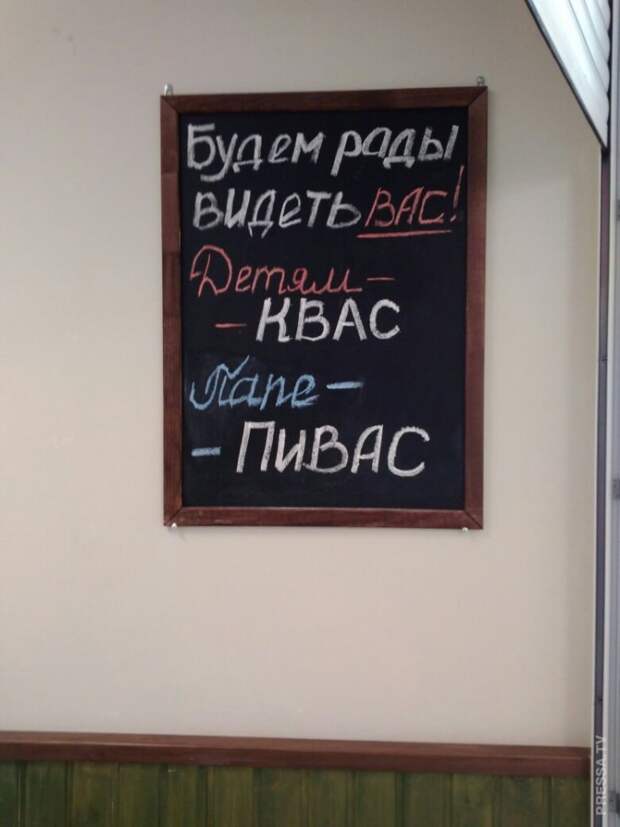 Будем рады
видеть ВАС!
Детям -
- КВАС
Папе -
- ПиВАС
PRESSA.TV